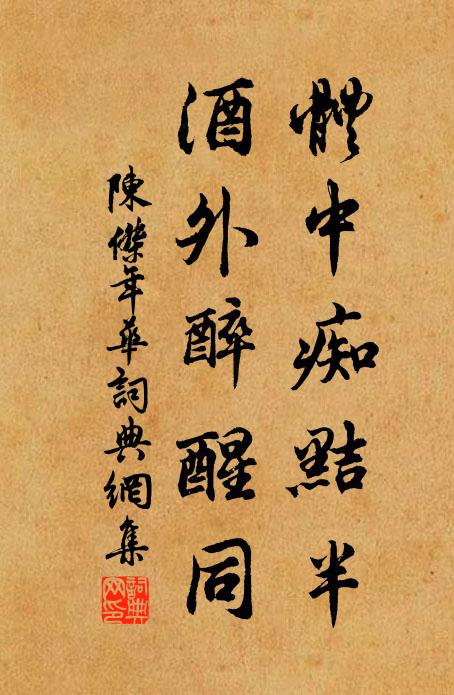 體中痴黠半
酒外醉醒同
陳傑年華詞典網集
詞典网印